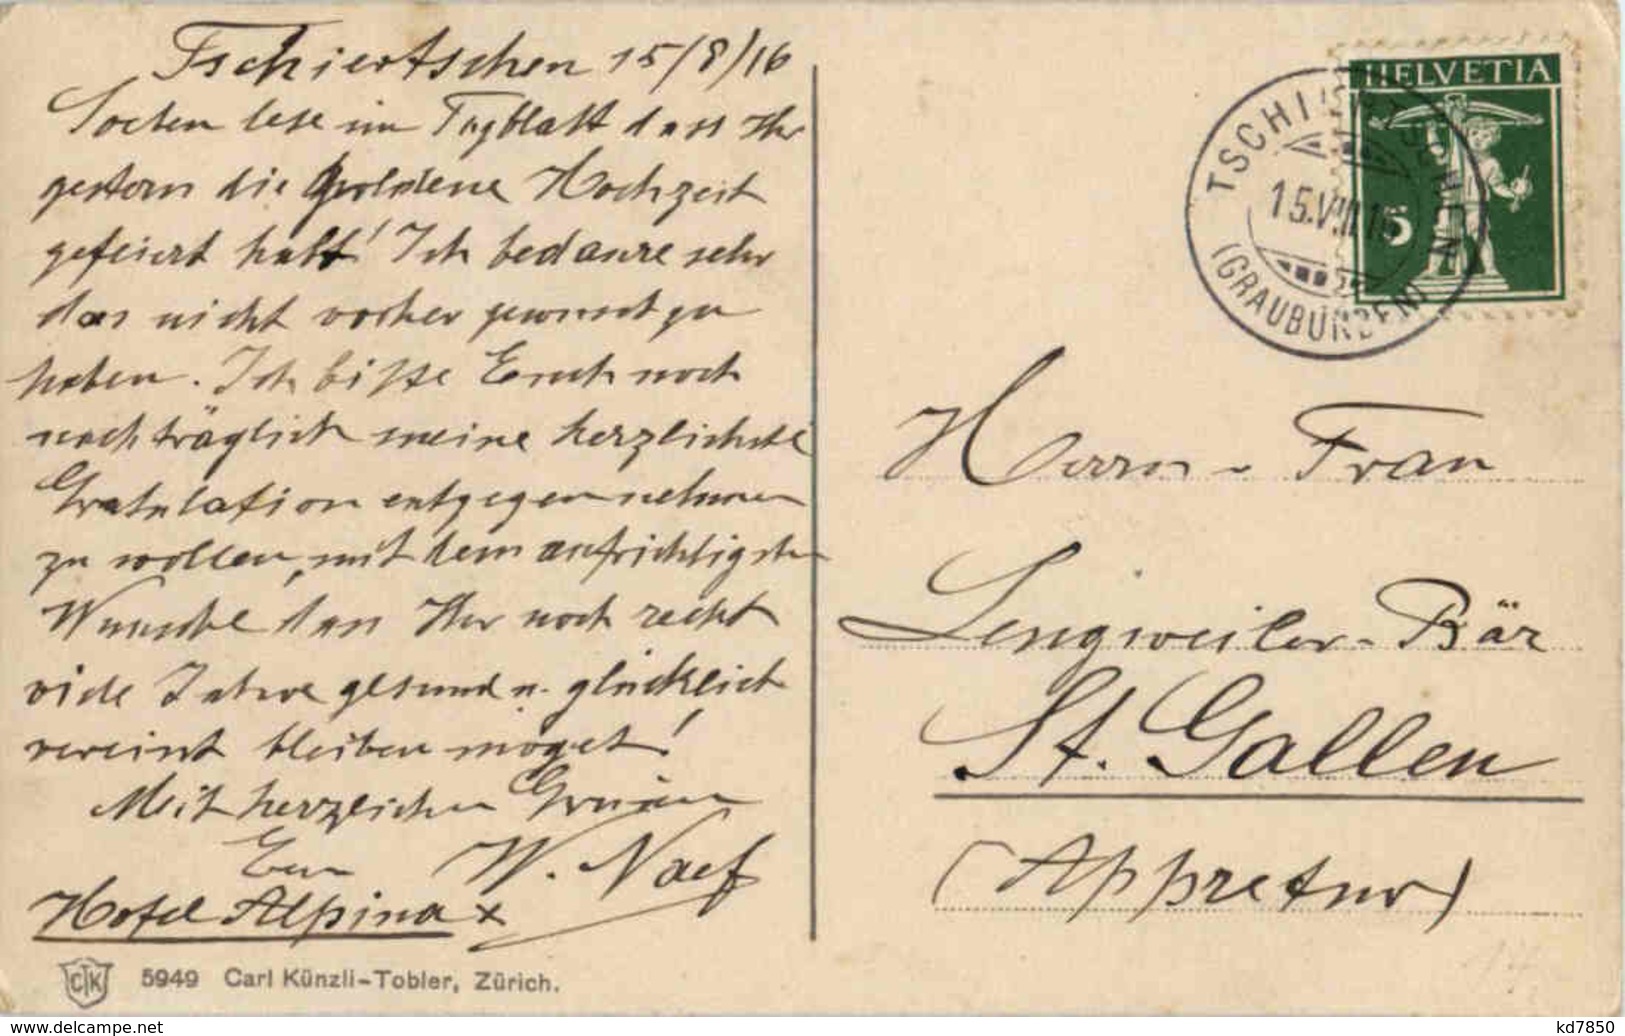 Tschiertschen 15/8/16
Soeben lese im Tagblatt dass Ihr
gestern die goldene Hochzeit
gefeiert habt! Ich bedaure sehr
das nicht vorher gewusst zu
haben. Ich bitte Euch noch
nachträglich meine herzlichste
Gratulation entgegennehmen
zu wollen, mit dem aufrichtigsten
Wunsche dass Ihr noch recht
viele Jahre gesund u. glücklich
vereint bleiben möget!
Mit herzlichen Grüssen
Euer W. Naef
Hotel Alpina
CTK 5949 Carl Künzli-Tobler, Zürich.
HELVETIA
5
TSCHIERTSCHEN
15.VIII.16
(GRAUBÜNDEN)
Herrn u Frau
Lengweiler-Bär
St. Gallen
(Appretur)
delcampe.net
kd7850